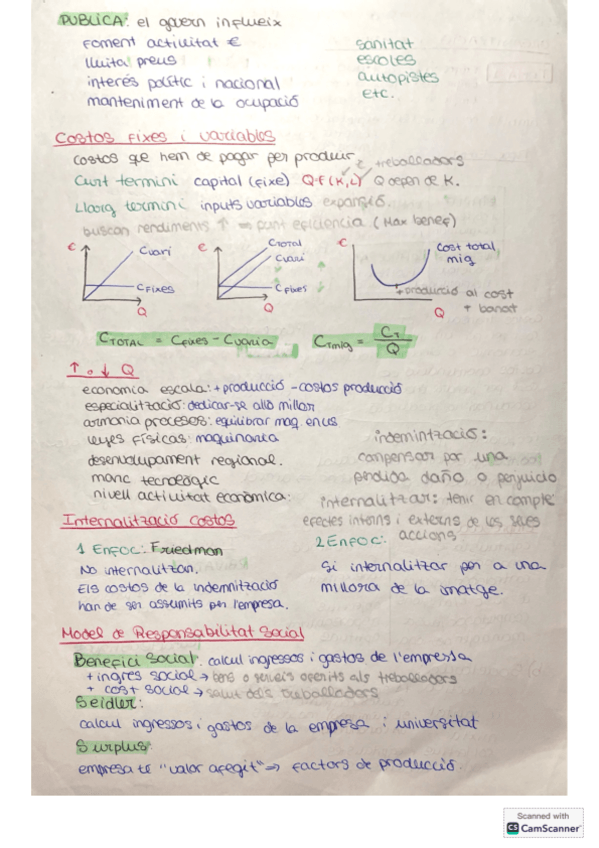 PÚBLICA: el govern influeix
foment activitat €
lluita preus
interés polític i nacional
manteniment de la ocupació
sanitat
escoles
autopistes
etc.
Costos fixes i variables
costos que hem de pagar per produir
treballadors
Curt termini capital (fixe) Q=f(K,L) Q depen de K.
Llarg termini inputs variables expansió.
buscan rendiments ↑ ⇒ punt eficiencia (Max benef)
€ Cvari Cfixes Q
€ CTOTAL Cvari Cfixes Q
€ Cost total mig
+ producció al cost
+ barat
Q
CTOTAL = Cfixes - Cvaria
CTmig = CT / Q
↑ o ↓ Q
economia escala: + producció - costos producció
especialització: dedicar-se allò millor
armonia procesos: equilibrar maq. en us
leyes físicas: maquinaria
desenvolupament regional.
marc tecnologic
nivell activitat econòmica:
indemintzació:
compensar por una
perdida daño o perjuicio
internalitzar: tenir en compte
efectes interns i externs de les seves
accions
Internalització costos
1 Enfoc: Friedman
No internalitzan.
Els costos de la indemnització
han de ser assumits per l'empresa.
2 Enfoc:
Si internalitzar per a una
millora de la imatge.
Model de Responsabilitat Social
Benefici Social: calcul ingressos i gastos de l'empressa
+ ingres social → bens o serveis oferits als treballadors
+ cost social → salut dels treballadors
Seidler:
calcul ingressos i gastos de la empresa i universitat
Surplus:
empresa te "valor afegit" ⇒ factors de producció.
Scanned with
CS CamScanner